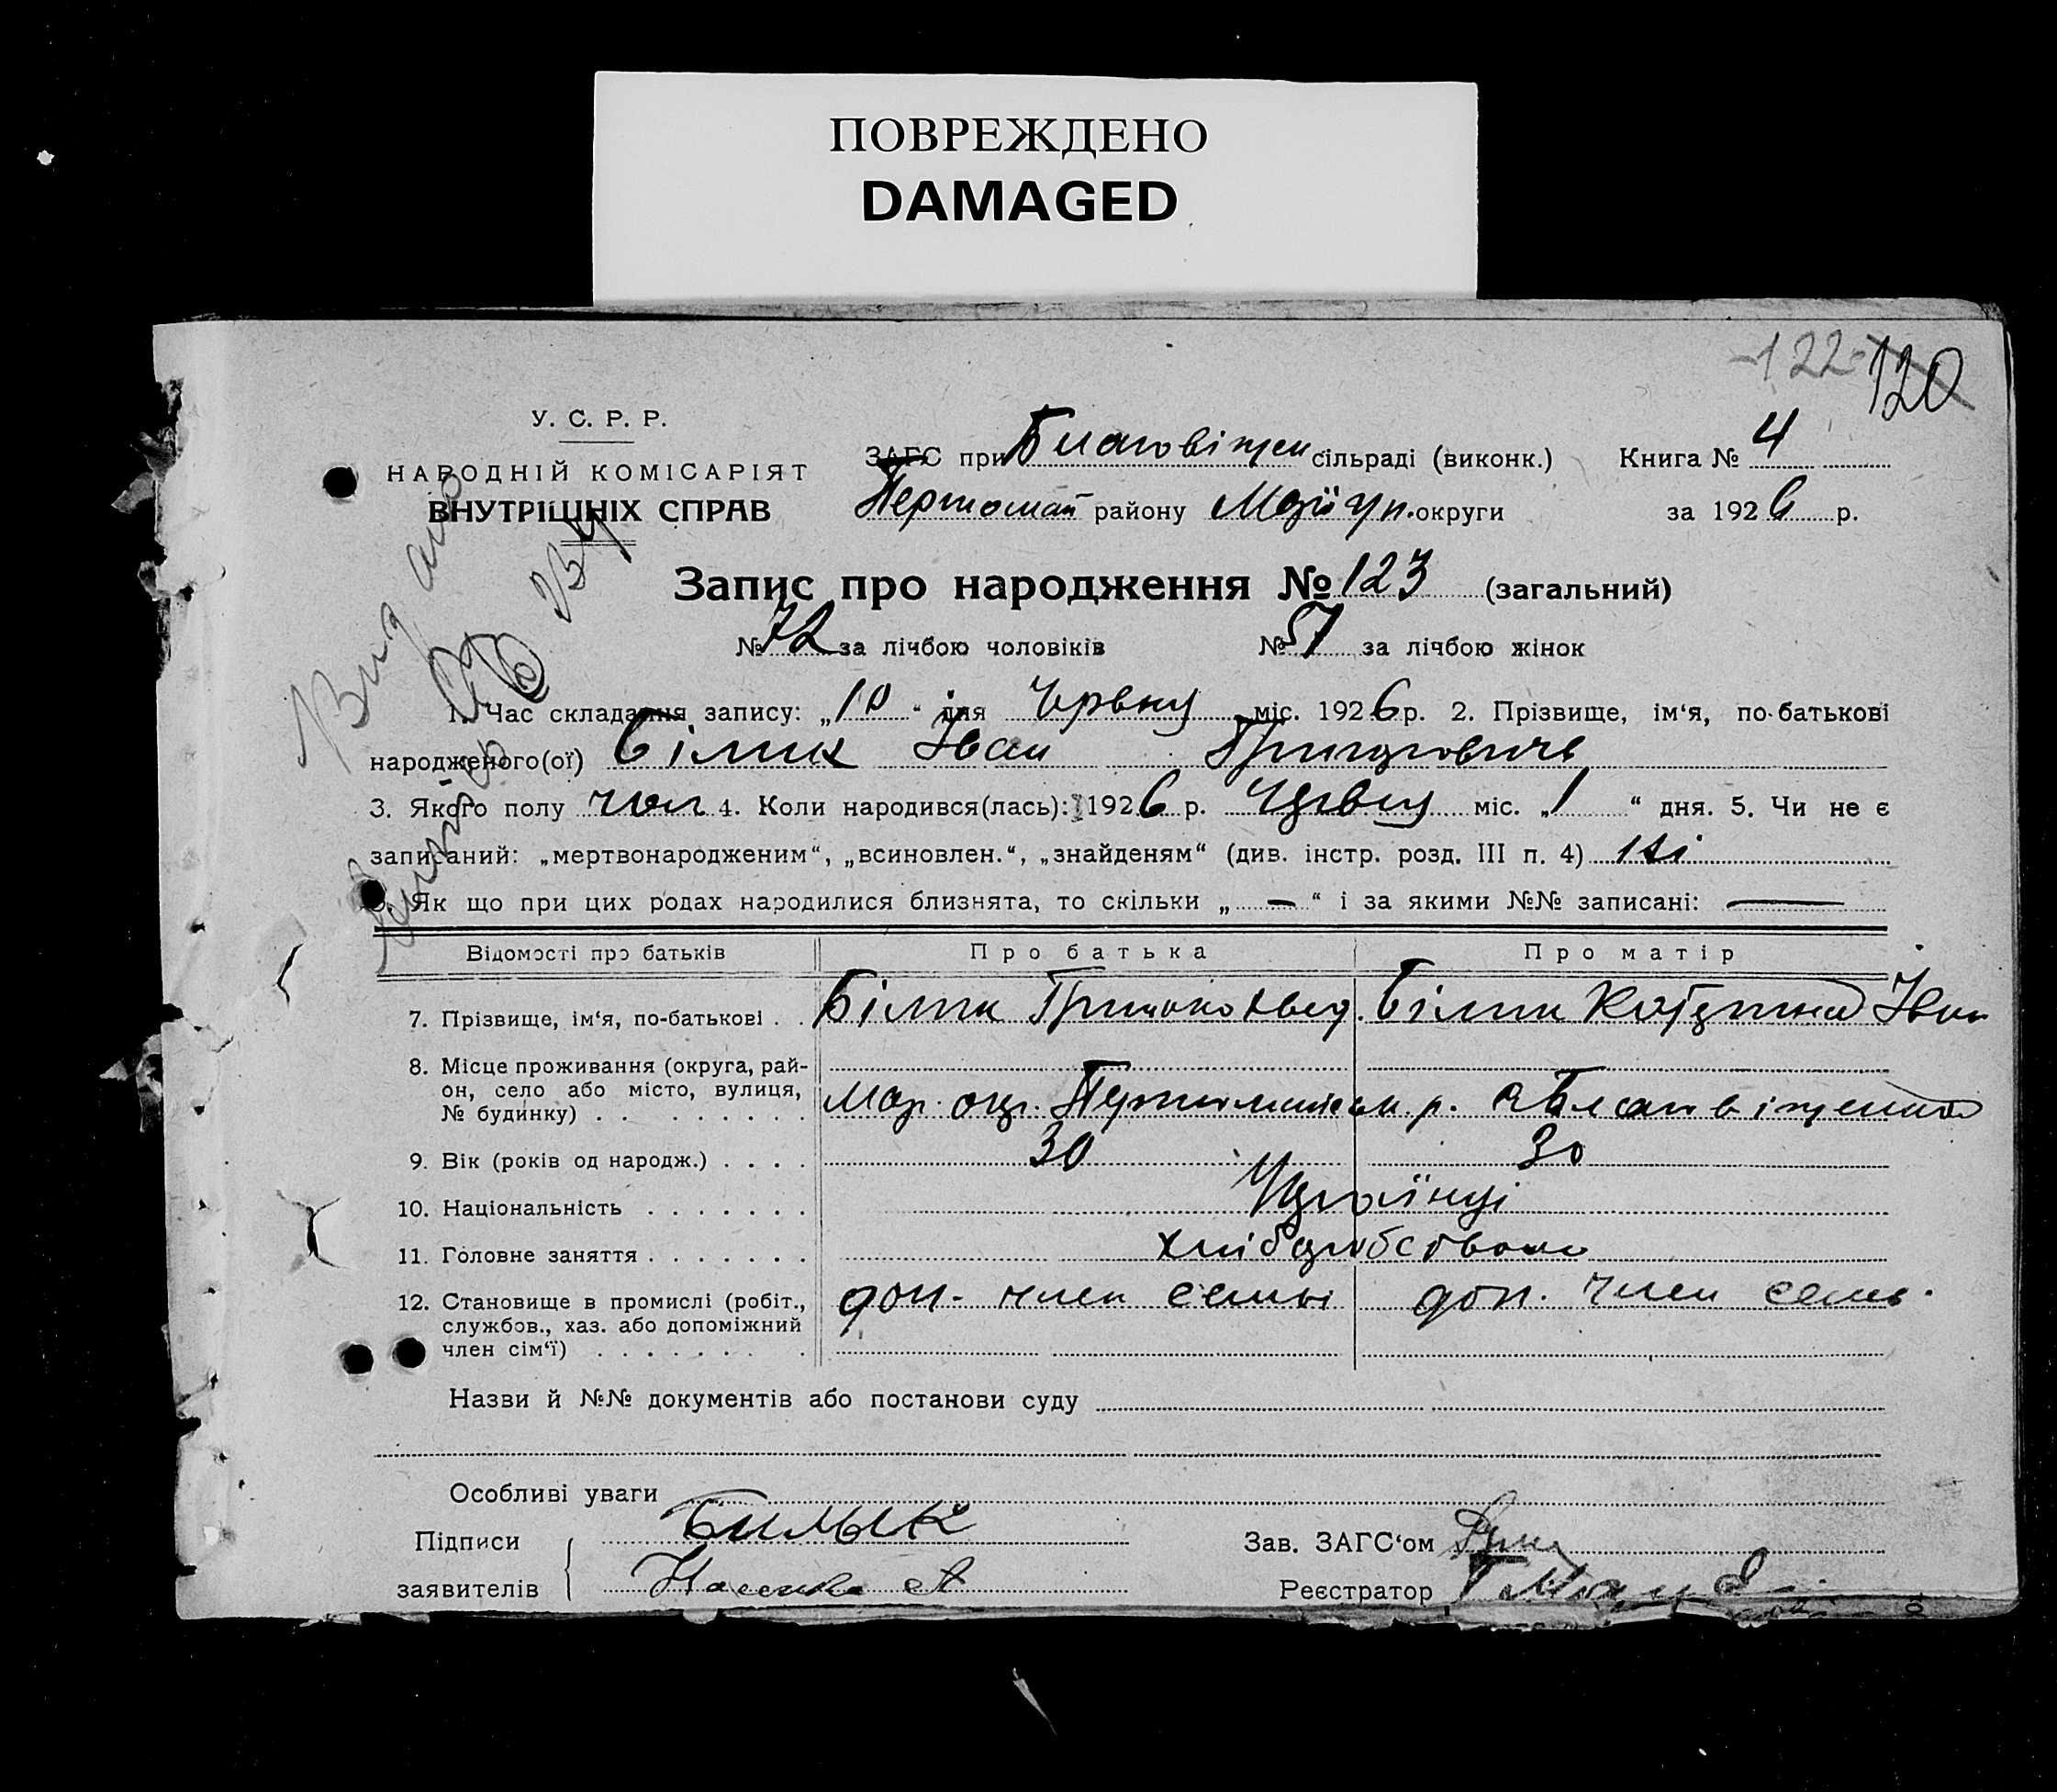 ПОВРЕЖДЕНО
DAMAGED
-122- 120
У. С. Р. Р.
НАРОДНІЙ КОМІСАРІЯТ
ВНУТРІШНІХ СПРАВ
ЗАГС при Благовіщен сільраді (виконк.) Книга № 4
району округи за 1926 р.
Запис про народження № 123 (загальний)
№ 72 за лічбою чоловіків № 51 за лічбою жінок
1. Час складання запису: „10“ дня Червня міс. 1926 р. 2. Прізвище, ім‘я, по-батькові
народженого(ої) Білик Іван Григорович
3. Якого полу чол 4. Коли народився(лась): 1926 р. Червня міс. „1“ дня. 5. Чи не є
записаний: „мертвонародженим“, „всиновлен.“, „знайденям“ (див. інстр. розд. III п. 4) Ні
6. Як що при цих родах народилися близнята, то скільки „—“ і за якими №№ записані: —
Відомості про батьків Про батька Про матір
7. Прізвище, ім‘я, по-батькові . . Білик Білик Іван
8. Місце проживання (округа, рай-
он, село або місто, вулиця,
№ будинку) . . . . . . . . Мар. окр. р.
9. Вік (років од народж.) . . . . 30 30
10. Національність . . . . . . . Українці
11. Головне заняття . . . . . . . хліборобство
12. Становище в промислі (робіт., доп. член семьи доп. член семь.
службов., хаз. або допоміжний
член сім‘ї) . . . . . . . .
Назви й №№ документів або постанови суду
Особливі уваги
Підписи Билык Зав. ЗАГС‘ом
заявителів Реєстратор
Видано